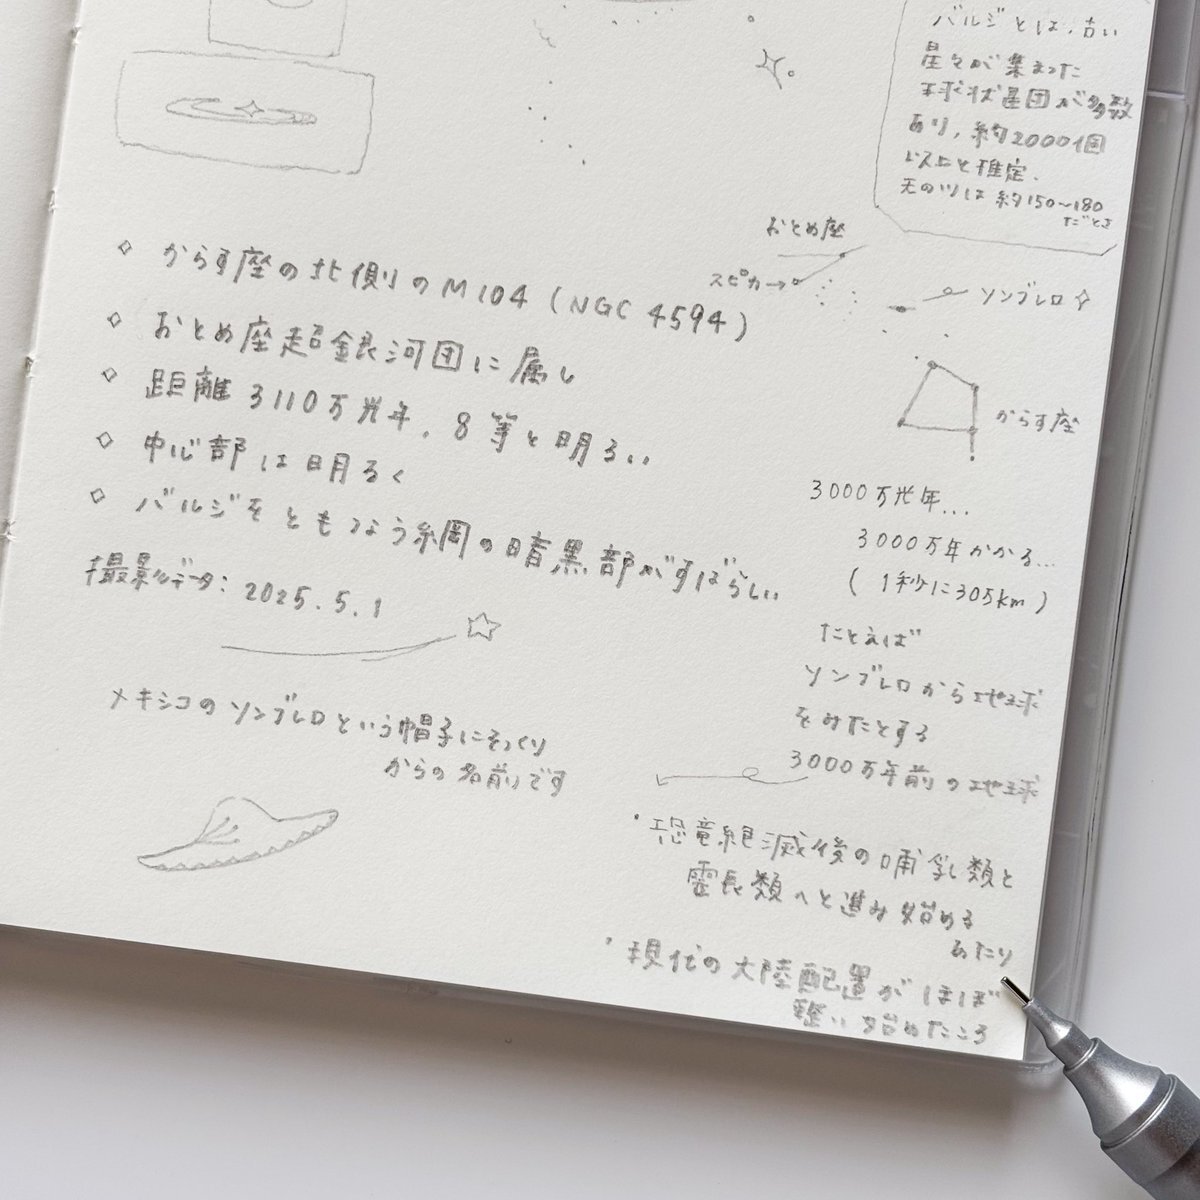 バルジとは、古い
星々が集まった
球状星団が多数
あり、約2000個
以上と推定.
天のツは約150〜180
だとさ
おとめ座
スピカ→
ソンブレロ
からす座
◇ からす座の北側のM104 (NGC 4594)
◇ おとめ座超銀河団に属し
◇ 距離3110万光年. 8等と明るい
◇ 中心部は明るく
◇ バルジをともなう網の暗黒部がすばらしい
撮影データ: 2025.5.1
メキシコのソンブレロという帽子にそっくり
からの名前です
3000万光年...
3000万年かかる...
(1秒に305km)
たとえば
ソンブレロから地球
をみたとする
3000万年前の地球
・恐竜絶滅後の哺乳類と
霊長類へと進み始める
あたり
・現代の大陸配置がほぼ
整い始めたころ